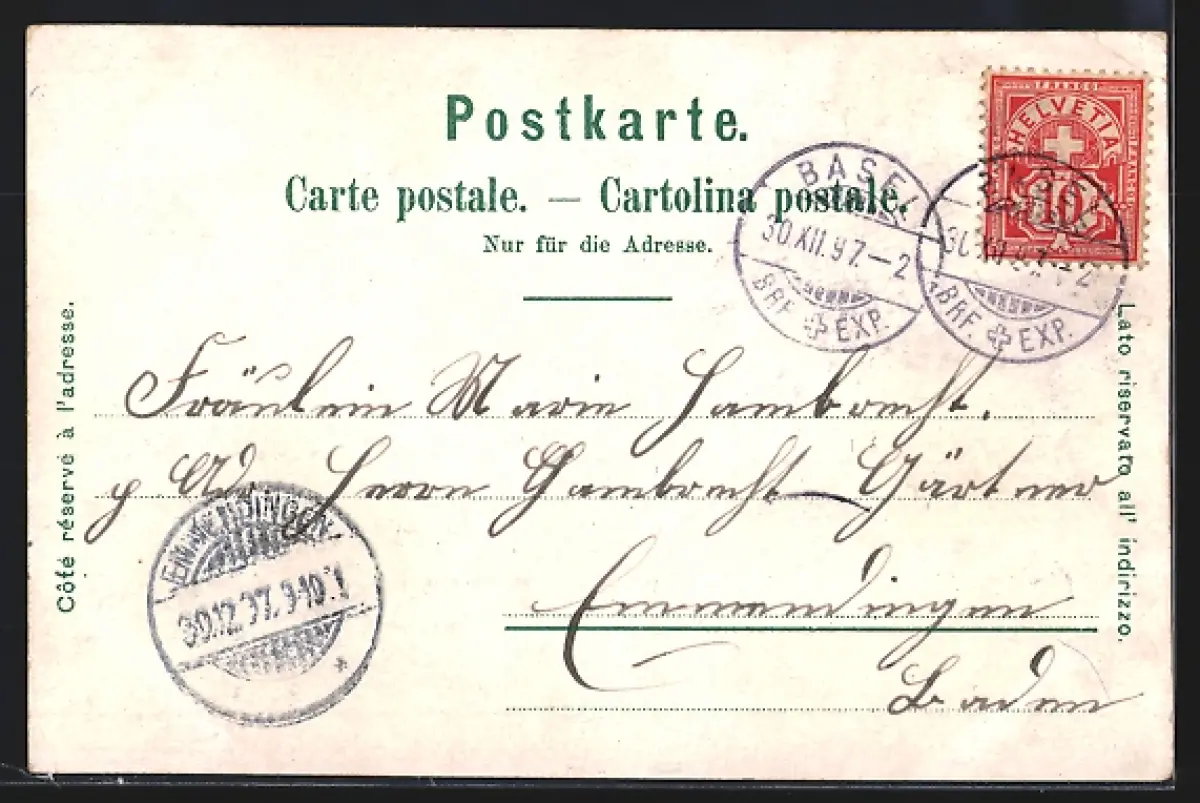 Postkarte.
Carte postale. — Cartolina postale.
Nur für die Adresse.
FRANCO
HELVETIA
10
BASEL
30.XII.97.—2
BRF. EXP.
BASEL
30.XII.97.—2
BRF. EXP.
Côté réservé à l'adresse.
Lato riservato all' indirizzo.
Fräulein Marie Hambrecht.
p. Ad. Herrn Hambrecht Gärtner
Emmendingen
Baden
EMMENDINGEN
30.12.97. 9-10